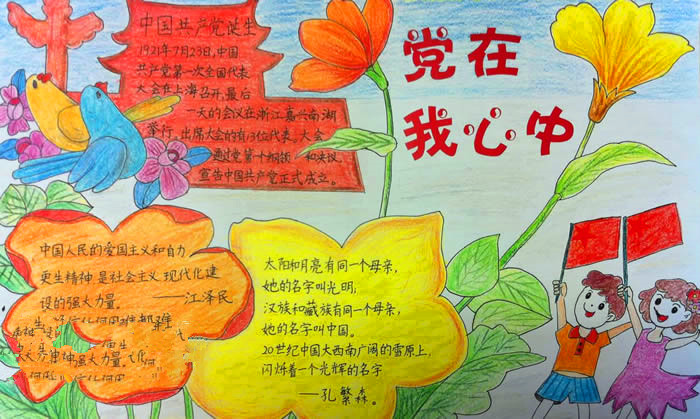 党在
我心中
中国共产党诞生
1921年7月23日,中国
共产党第一次全国代表
大会在上海召开,最后
一天的会议在浙江嘉兴南湖
举行。出席大会的有13位代表。大会
通过党第一个纲领和决议,
宣告中国共产党正式成立。
中国人民的爱国主义和自力
更生精神是社会主义现代化建
设的强大力量。
——江泽民
太阳和月亮有同一个母亲,
她的名字叫光明,
汉族和藏族有同一个母亲,
她的名字叫中国。
20世纪中国大西南广阔的雪原上,
闪烁着一个光辉的名字
——孔繁森。